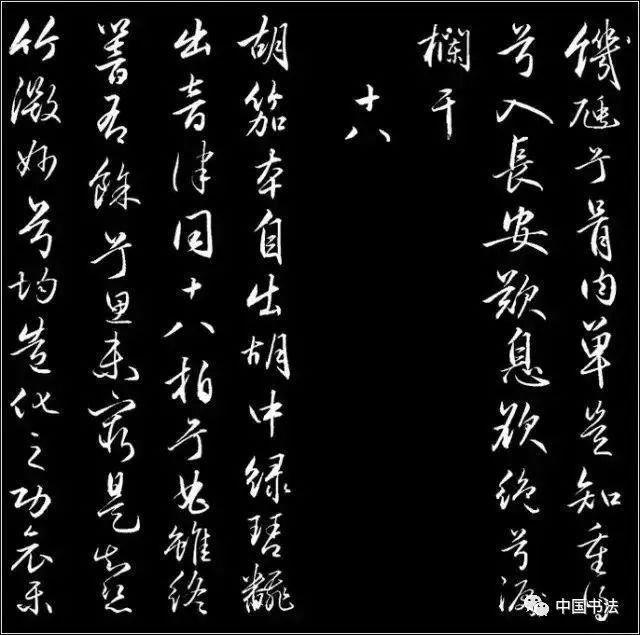 饑兮骨肉單豈知重得
兮入長安歎息欲絕兮淚
欄干
十八
胡笳本自出胡中緑琴翻
出音律同十八拍兮曲雖終
響有餘兮思未窮是知絲
竹微妙兮均造化之功哀樂
中国书法